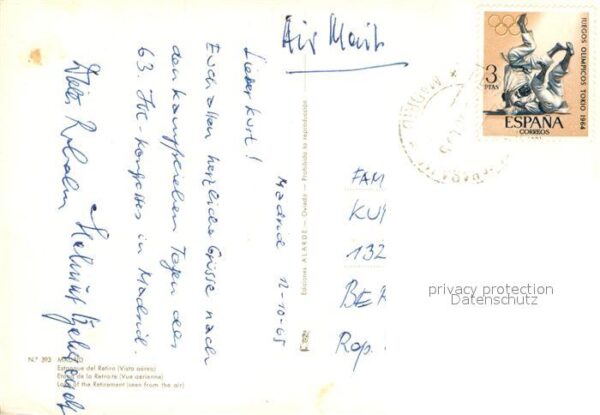 Air Mail
JUEGOS OLIMPICOS TOKIO 1964
3
PTAS
ESPAÑA
CORREOS
Madrid 12-10-65
Lieber Kurt!
Euch allen herzliche Grüsse nach
den kampfreichen Tagen des
63 IOC Kongresses in Madrid.
Helmut
FAM
KU
132
BER
Rep.
privacy protection
Datenschutz
Ediciones ALARDE - Oviedo - Prohibida la reproducción
N.º 393 MADRID
Estanque del Retiro (Vista aérea)
Etang de la Retraite (Vue aérienne)
Lake of the Retirement (seen from the air)